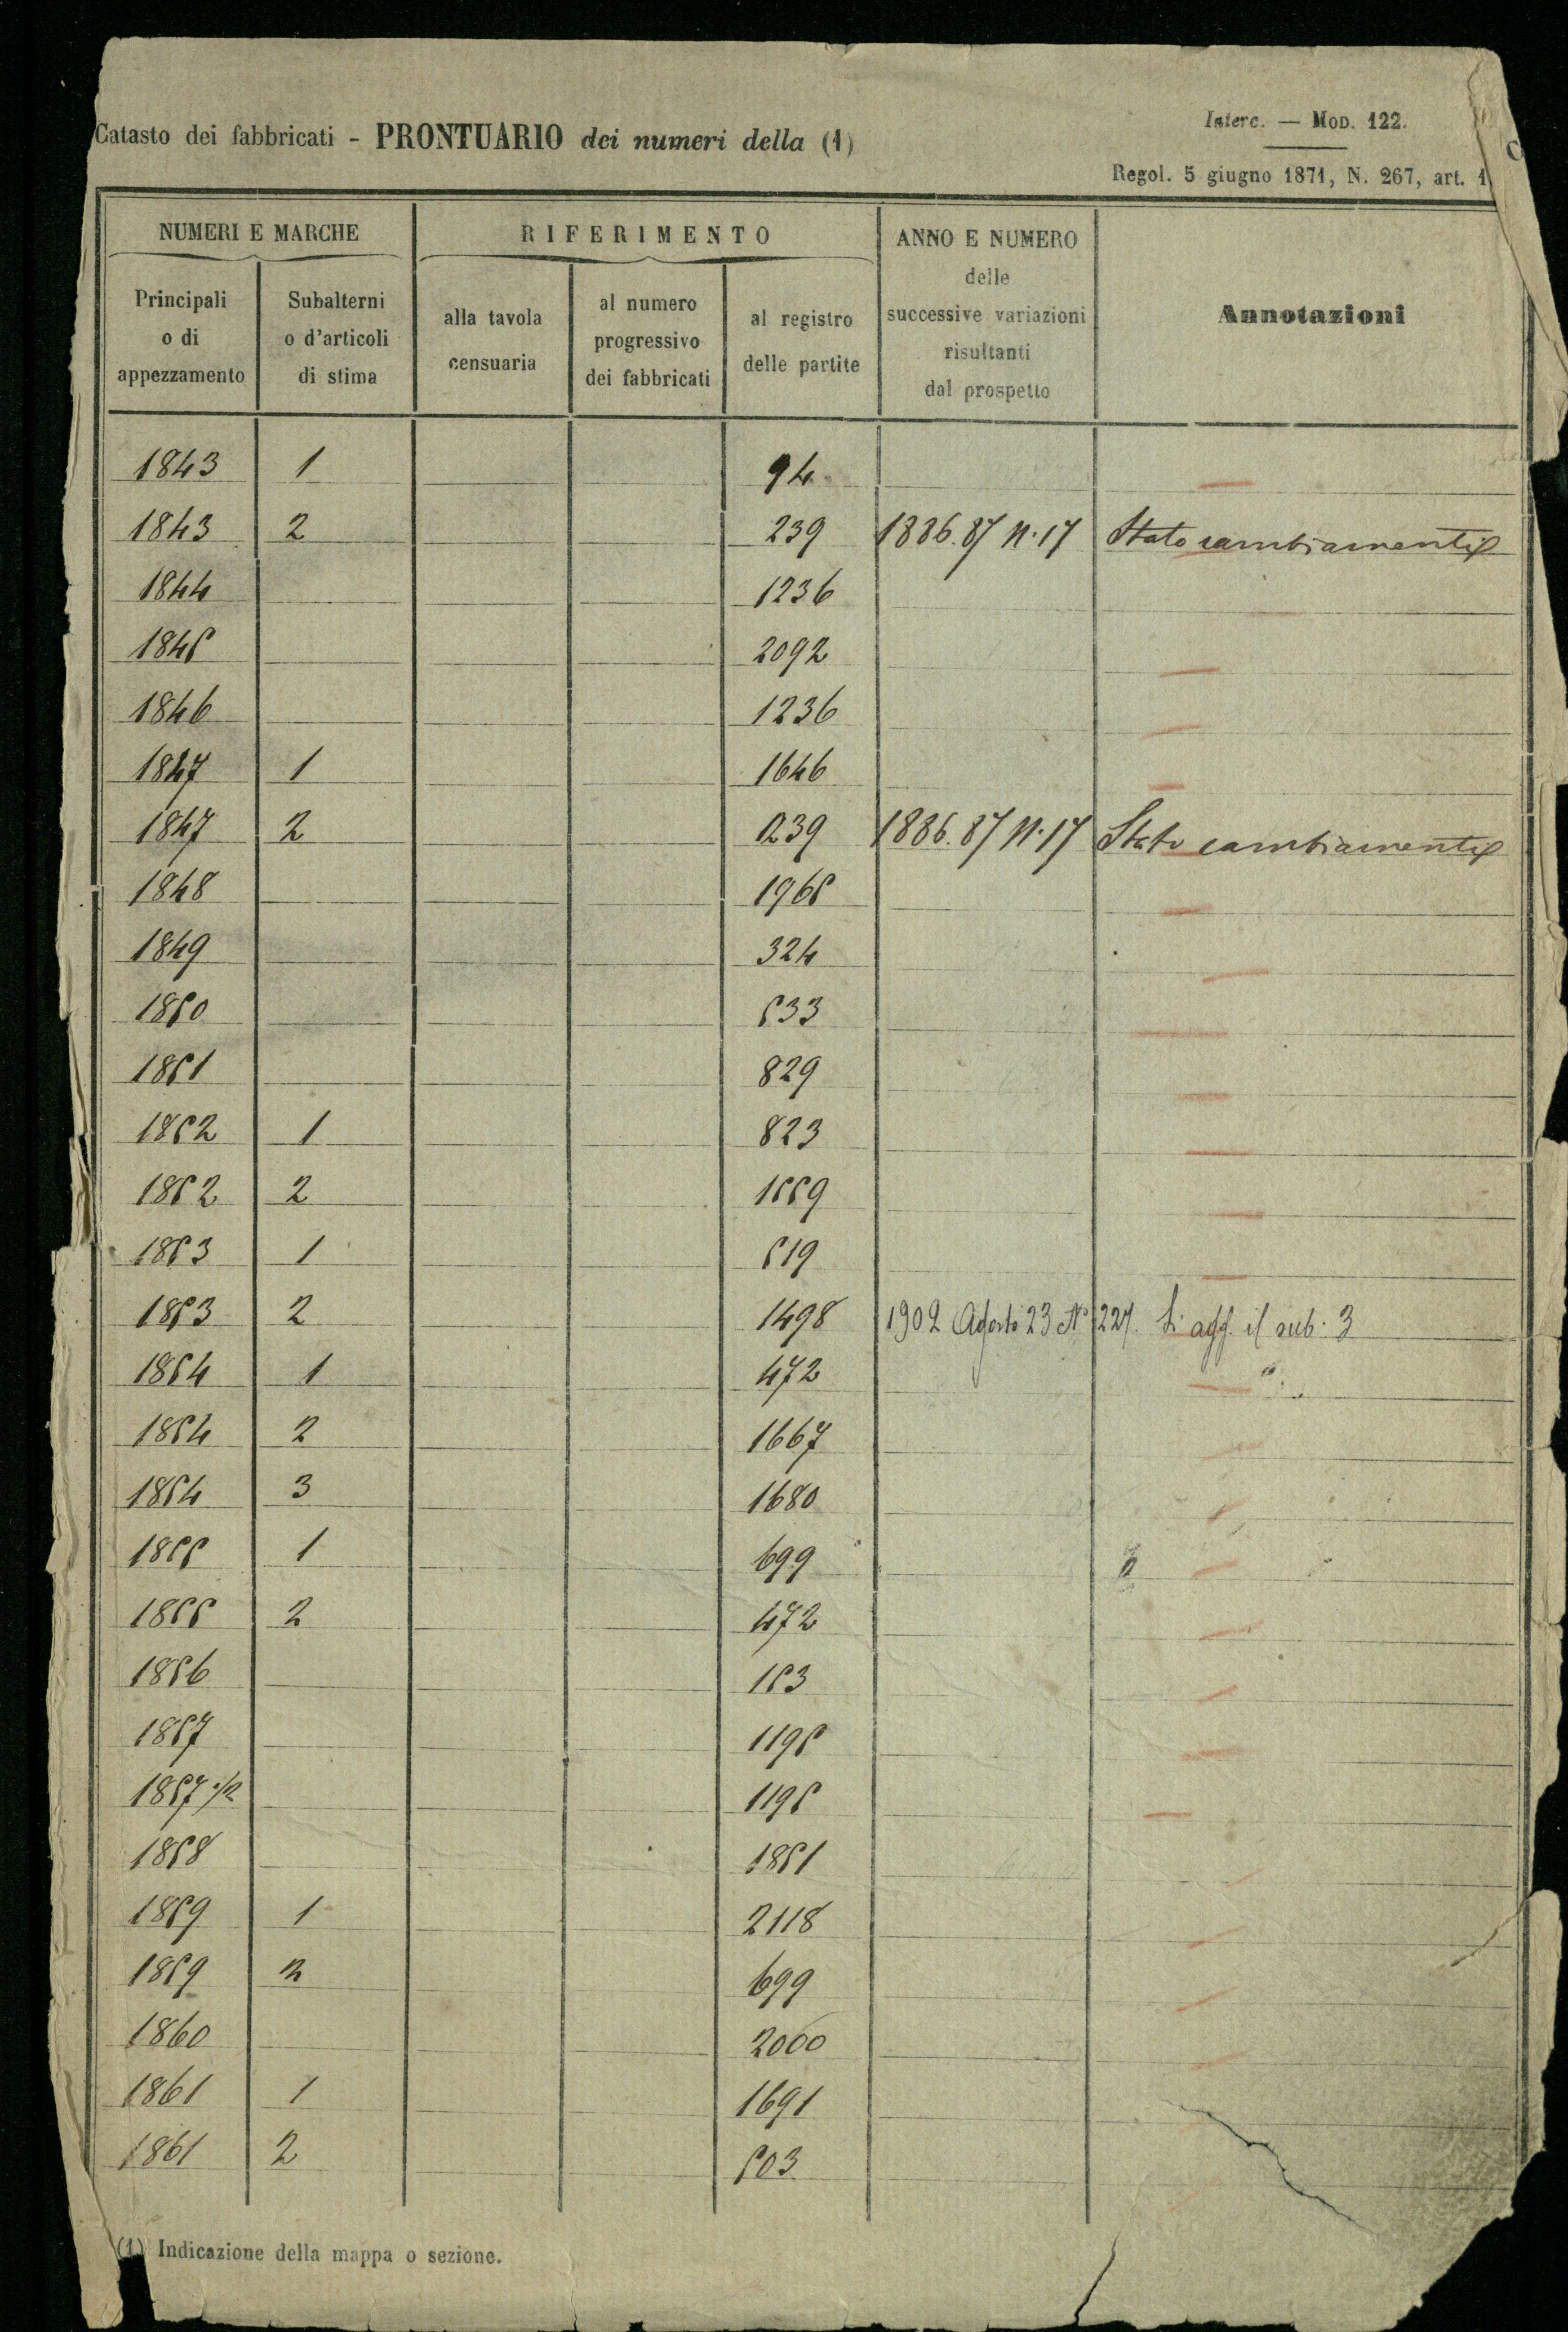 Interc. — MOD. 122.
Catasto dei fabbricati - PRONTUARIO dei numeri della (1)
Regol. 5 giugno 1871, N. 267, art. 1
NUMERI E MARCHE
RIFERIMENTO
ANNO E NUMERO
delle
successive variazioni
risultanti
dal prospetto
Annotazioni
Principali
o di
appezzamento
Subalterni
o d'articoli
di stima
alla tavola
censuaria
al numero
progressivo
dei fabbricati
al registro
delle partite
1843 1 94
1843 2 239 1886.87 N. 17 Stato cambiamenti
1844 1236
1845 2092
1846 1236
1847 1 1646
1847 2 239 1886.87 N. 17 Stato cambiamenti
1848 1965
1849 324
1850 533
1851 829
1852 1 823
1852 2 1559
1853 1 519
1853 2 1498 1902 Agosto 23 N° 227. Si agg. il sub. 3
1854 1 472
1854 2 1667
1854 3 1680
1855 1 699
1855 2 472
1856 153
1857 1195
1857 1/2 1195
1858 1851
1859 1 2118
1859 2 699
1860 2000
1861 1 1691
1861 2 503
(1) Indicazione della mappa o sezione.